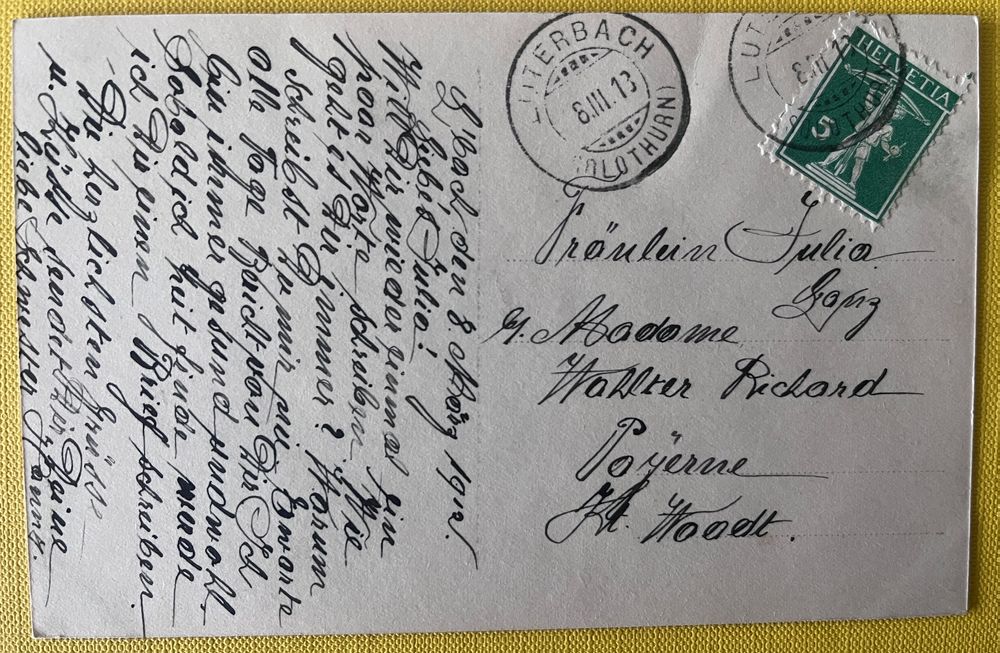 LUTERBACH
8.III.13
(SOLOTHURN)
LUT
8.III.13
OLOTHURN
HELVETIA
5
L'bach, den 8 März 1912.
Liebes Julia!
Will Dir wieder einmal ein
paar Worte schreiben. Wie
geht es Dir immer? Warum
schreibst Du mir nie. Erwarte
alle Tage Bericht von Dir. Ich
bin immer gesund und wohl.
Sobald ich Zeit finde werde
ich Dir einen Brief schreiben.
Die herzlichsten Grüsse
u. Küsse sendet Dir Deine
liebe Schwester Anna.
Fräulein Julia
Ganz
Madame
Wahlter Richard
Payerne
Kt. Waadt.